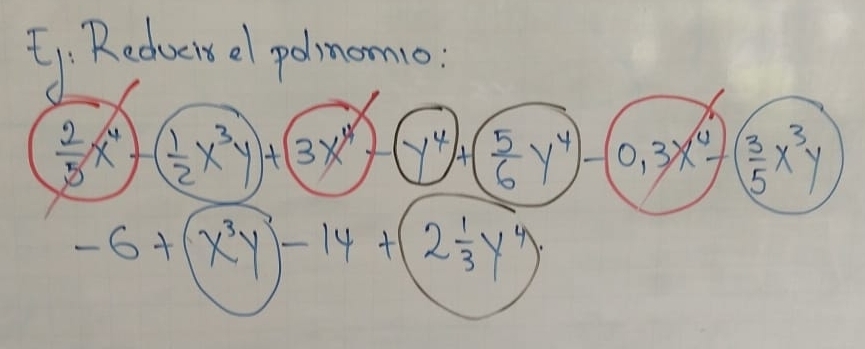 Ej: Reducir el polinomio:
2/5 x⁴ - 1/2 x³y + 3x⁴ - y⁴ + 5/6 y⁴ - 0,3x⁴ - 3/5 x³y
- 6 + x³y - 14 + 2 1/3 y⁴.